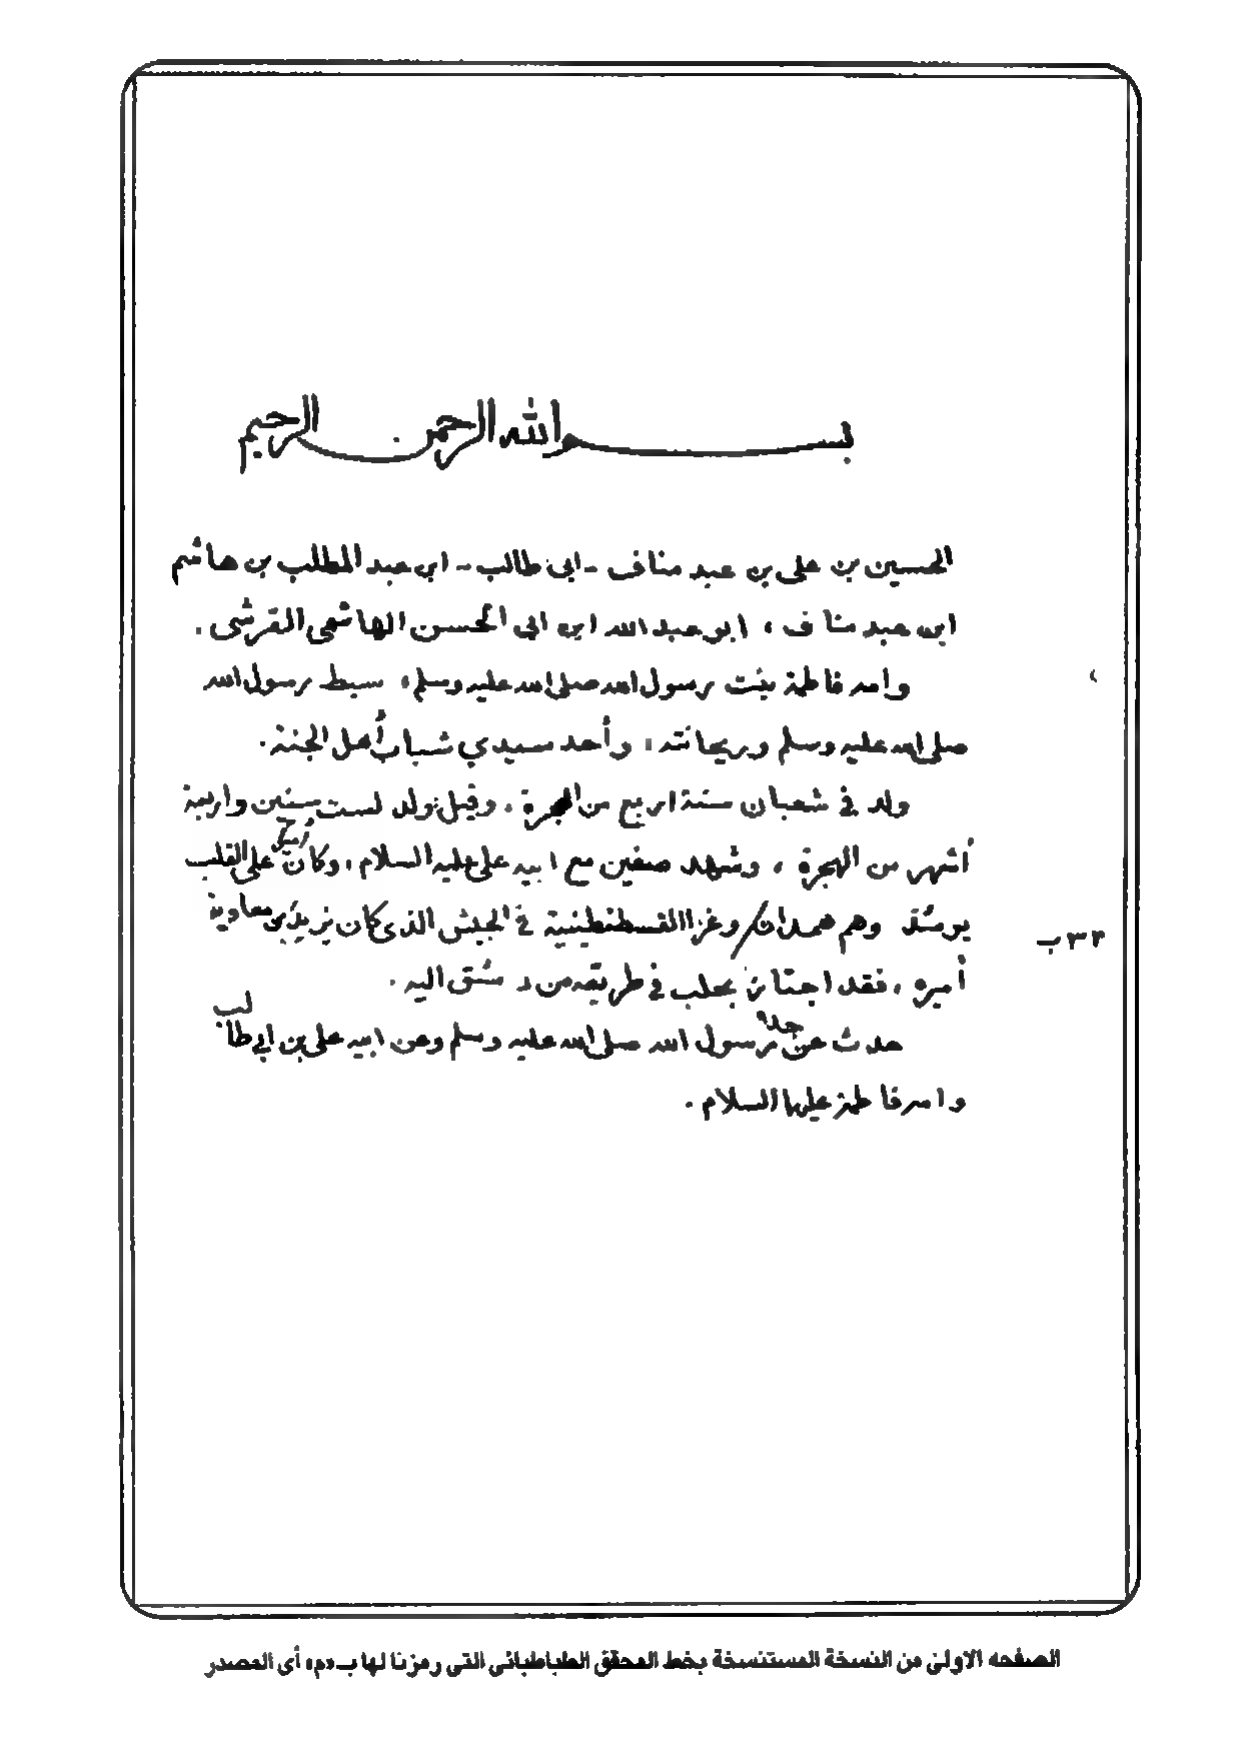 بسم الله الرحمن الرحيم
الحسين بن على بن عبد مناف - ابى طالب - ابن عبد المطلب بن هاشم
ابن عبد مناف ، ابو عبد الله ابن ابى الحسن الهاشمى القرشى .
وامه فاطمة بنت رسول الله صلى الله عليه وسلم ، سبط رسول الله
صلى الله عليه وسلم وريحانته ، وأحد سيدي شباب أهل الجنة .
ولد فى شعبان سنة اربع من الهجرة ، وقيل ولد لست سنين واربعة
أشهر من الهجرة ، وشهد صفين مع ابيه على عليه السلام ، وكان أميرا على القلب
يومئذ وهم همدان / وغزا القسطنطينية فى الجيش الذى كان يزيد بن معاوية
٣٣ ب
أميره ، فقد اجتاز بحلب فى طريقه من دمشق اليه .
حدث عن جده رسول الله صلى الله عليه وسلم وعن ابيه على بن ابى طالب
وامه فاطمة عليها السلام .
الصفحه الاولى من النسخة المستنسخة بخط المحقق الطباطبائى التى رمزنا لها بـ «م» أى المصدر